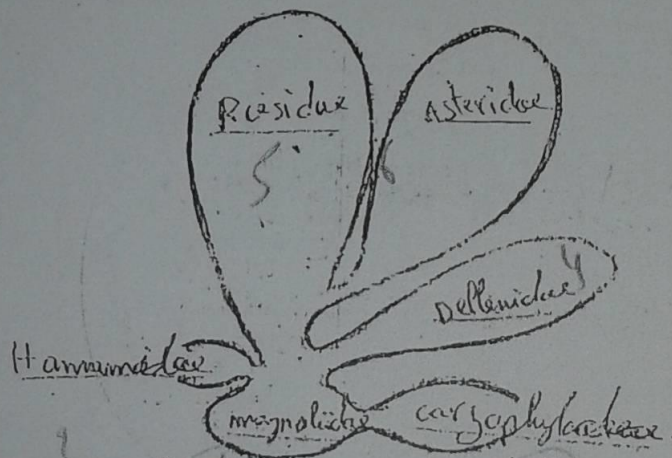 Rosidae
Asteridae
5
6
Dellenidae
4
Hamamedae
magnolidae
caryophylardeae
1